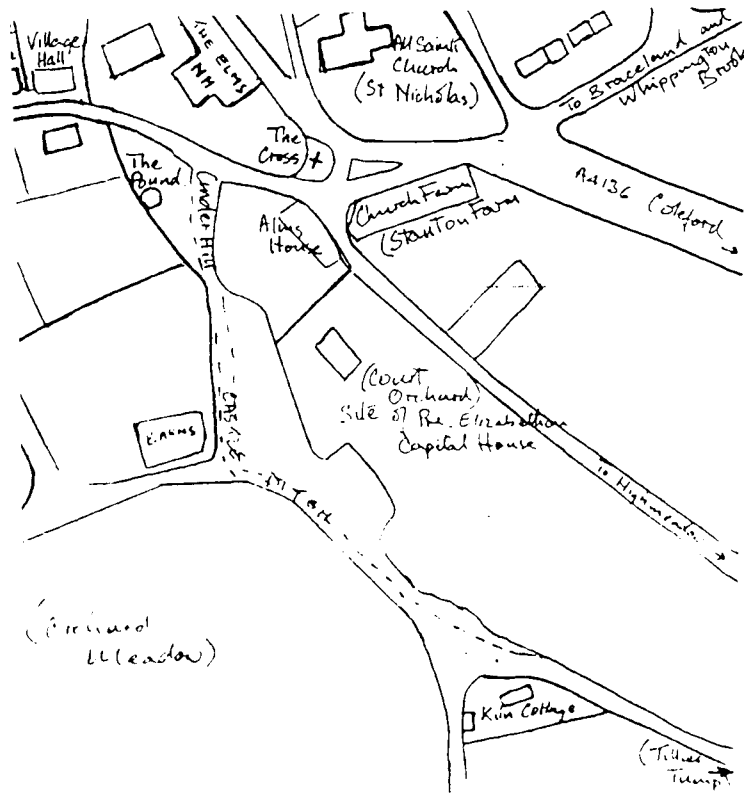 Village
Hall
THE ELMS
NH
All Saints
Church
(St Nicholas)
To Braceland and
Whippington
Brook
The
Cross
The
Pound
Cinder Hill
Alms
House
Church Farm
(Staunton Farm
A4136 Coleford
(Court
Orchard)
Site of Pre-Elizabethan
Capital House
To Highmeadow
(Orchard
Meadow)
Kiln Cottage
(Tillies
Tump)